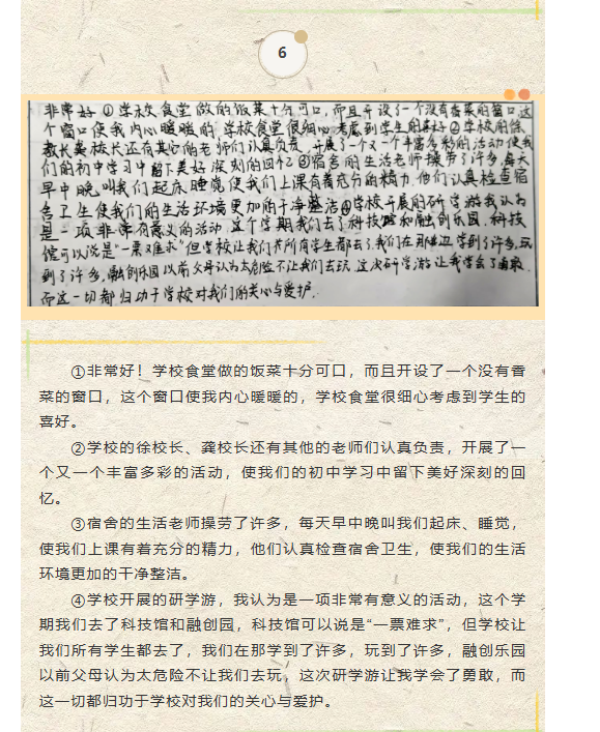 6
非常好①学校食堂做的饭菜十分可口,而且开设了一个没有香菜的窗口,这
个窗口使我内心暖暖的,学校食堂很细心考虑到学生的喜好②学校的徐
校长龚校长还有其它的老师们认真负责,开展了一个又一个丰富多彩的活动使我
们的初中学习中留下美好深刻的回忆③宿舍的生活老师操劳了许多,每天
早中晚叫我们起床睡觉使我们上课有着充分的精力,他们认真检查宿
舍卫生使我们的生活环境更加的干净整洁④学校开展的研学游我认为
是一项非常有意义的活动,这个学期我们去了科技馆和融创乐园,科技
馆可以说是“一票难求”但学校让我们所有学生都去了,我们在那学到了许多,玩
到了许多,融创乐园以前父母认为太危险不让我们去玩,这次研学游让我学会了勇敢,
而这一切都归功于学校对我们的关心与爱护.
①非常好！学校食堂做的饭菜十分可口，而且开设了一个没有香
菜的窗口，这个窗口使我内心暖暖的，学校食堂很细心考虑到学生的
喜好。
②学校的徐校长、龚校长还有其他的老师们认真负责，开展了一
个又一个丰富多彩的活动，使我们的初中学习中留下美好深刻的回
忆。
③宿舍的生活老师操劳了许多，每天早中晚叫我们起床、睡觉，
使我们上课有着充分的精力，他们认真检查宿舍卫生，使我们的生活
环境更加的干净整洁。
④学校开展的研学游，我认为是一项非常有意义的活动，这个学
期我们去了科技馆和融创园，科技馆可以说是“一票难求”，但学校让
我们所有学生都去了，我们在那学到了许多，玩到了许多，融创乐园
以前父母认为太危险不让我们去玩，这次研学游让我学会了勇敢，而
这一切都归功于学校对我们的关心与爱护。